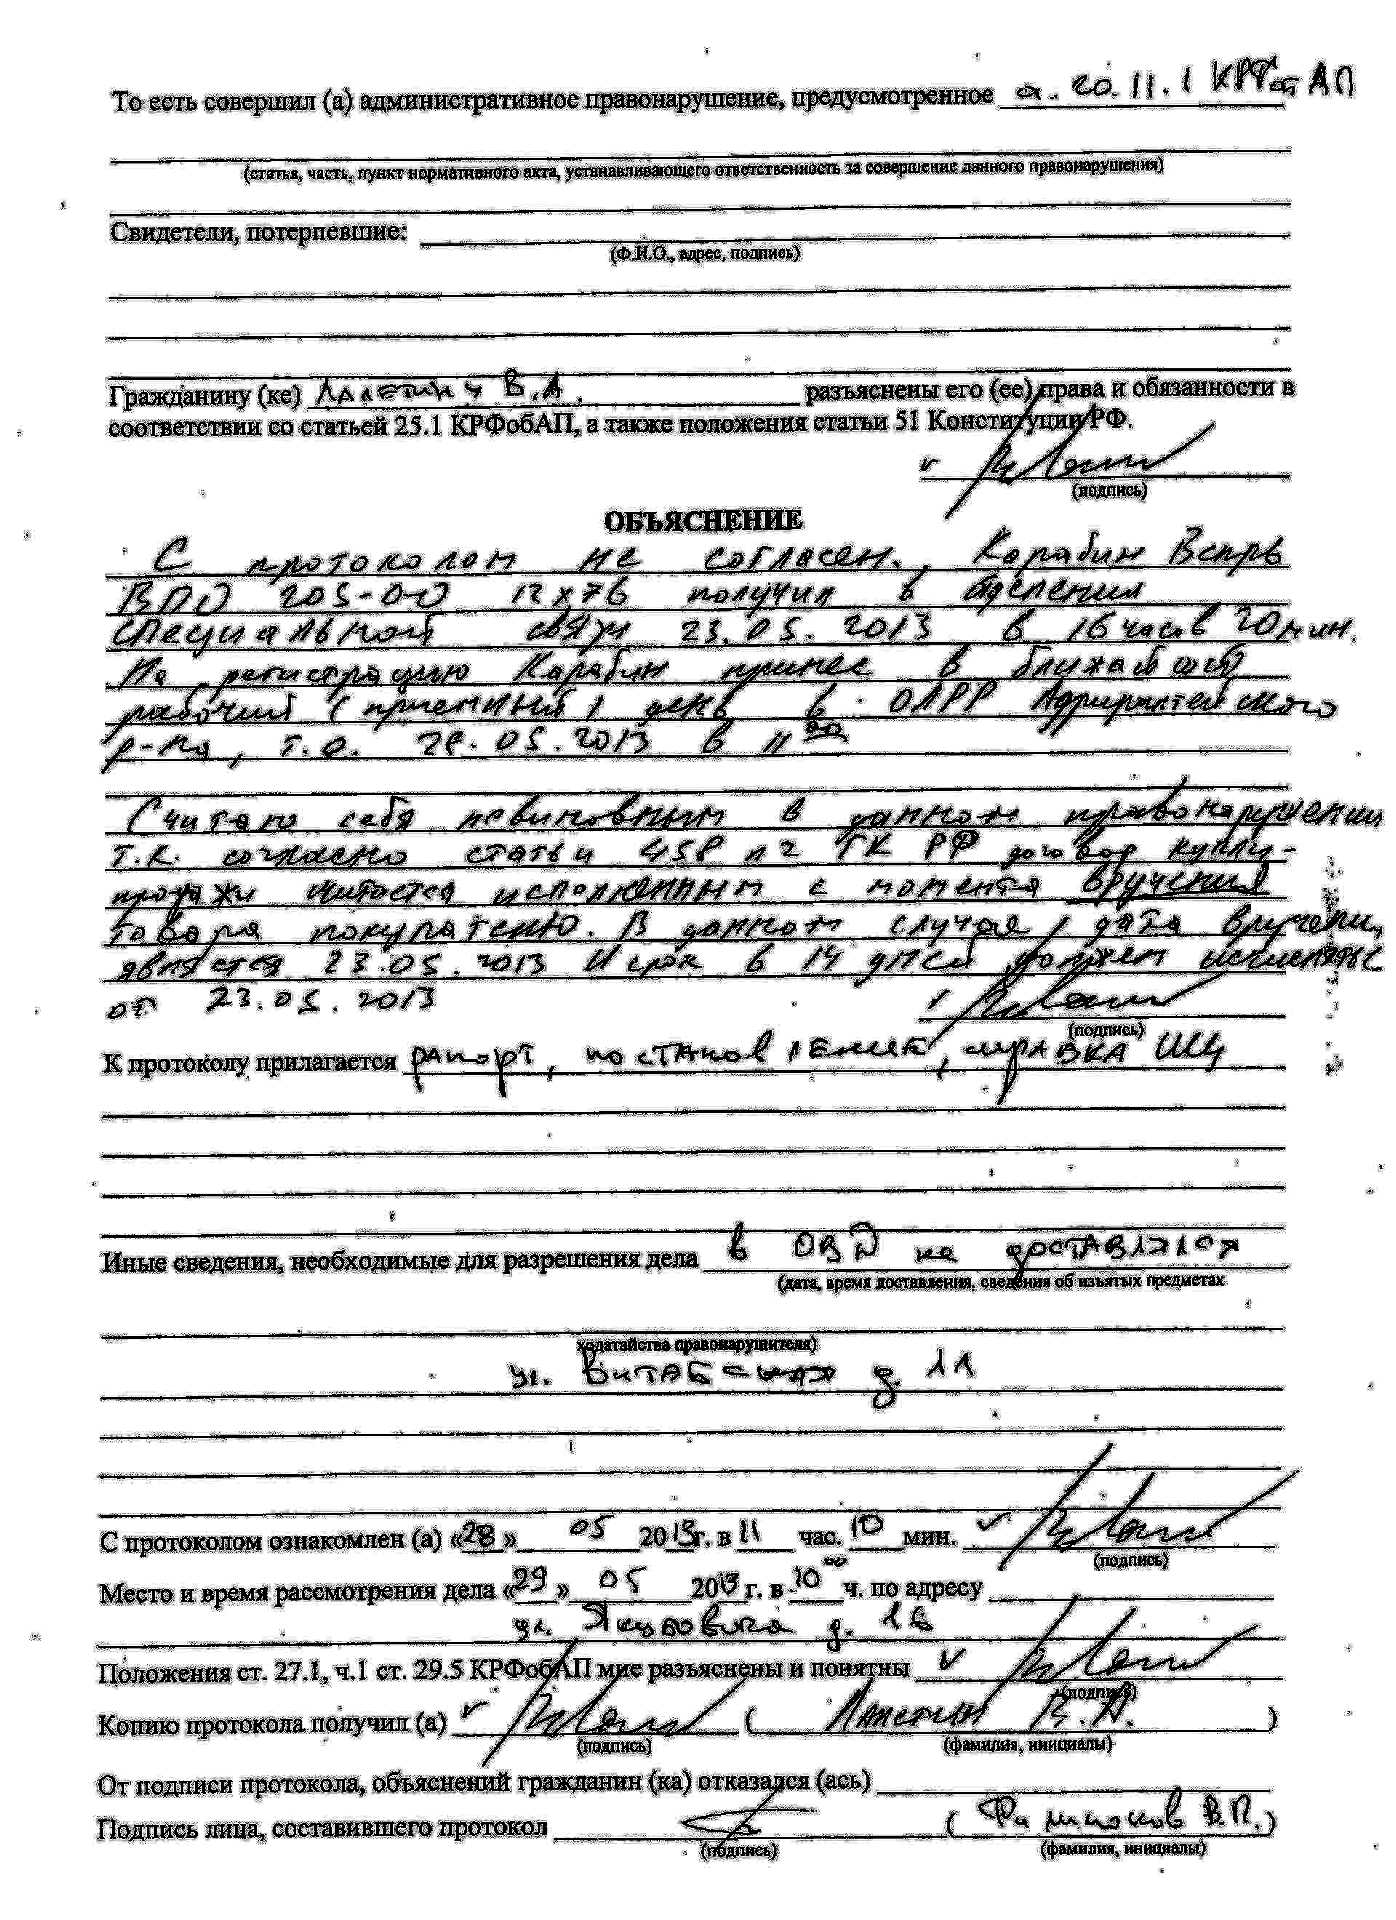 То есть совершил (а) административное правонарушение, предусмотренное 20.11.1 КРФобАП
(статья, часть, пункт нормативного акта, устанавливающего ответственность за совершение данного правонарушения)
Свидетели, потерпевшие:
(Ф.И.О., адрес, подпись)
Гражданину (ке) В.А. разъяснены его (ее) права и обязанности в
соответствии со статьей 25.1 КРФобАП, а также положения статьи 51 Конституции РФ.
(подпись)
ОБЪЯСНЕНИЕ
С протоколом не согласен. Карабин Вепрь
ВПО 205-00 12х76 получил в отделении
специальной связи 23.05.2013 в 16 часов 20 мин.
На регистрацию Карабин принес в ближайший
рабочий (приемный) день в ОЛРР Адмиралтейского
р-на, т.е. 28.05.2013 в 11
Считаю себя невиновным в данном правонарушении
т.к. согласно статьи 458 п 2 ГК РФ договор купли-
продажи считается исполненным с момента вручения
товара покупателю. В данном случае, дата вручения
является 23.05.2013 И срок в 14 дней должен исчисляться
от 23.05.2013
(подпись)
К протоколу прилагается рапорт, постановление, справка ИЦ
Иные сведения, необходимые для разрешения дела в ОВД не доставлялся
(дата, время доставления, сведения об изъятых предметах
ходатайства правонарушителя)
ул. д. 11
С протоколом ознакомлен (а) «28» 05 2013г. в 11 час. 10 мин.
(подпись)
Место и время рассмотрения дела «29» 05 2013г. в 10 00 ч. по адресу
ул. Якубовича д. 16
Положения ст. 27.1, ч.1 ст. 29.5 КРФобАП мне разъяснены и понятны
(подпись)
Копию протокола получил (а) ( В.А. )
(подпись) (фамилия, инициалы)
От подписи протокола, объяснений гражданин (ка) отказался (ась)
Подпись лица, составившего протокол ( В.П.)
(подпись) (фамилия, инициалы)